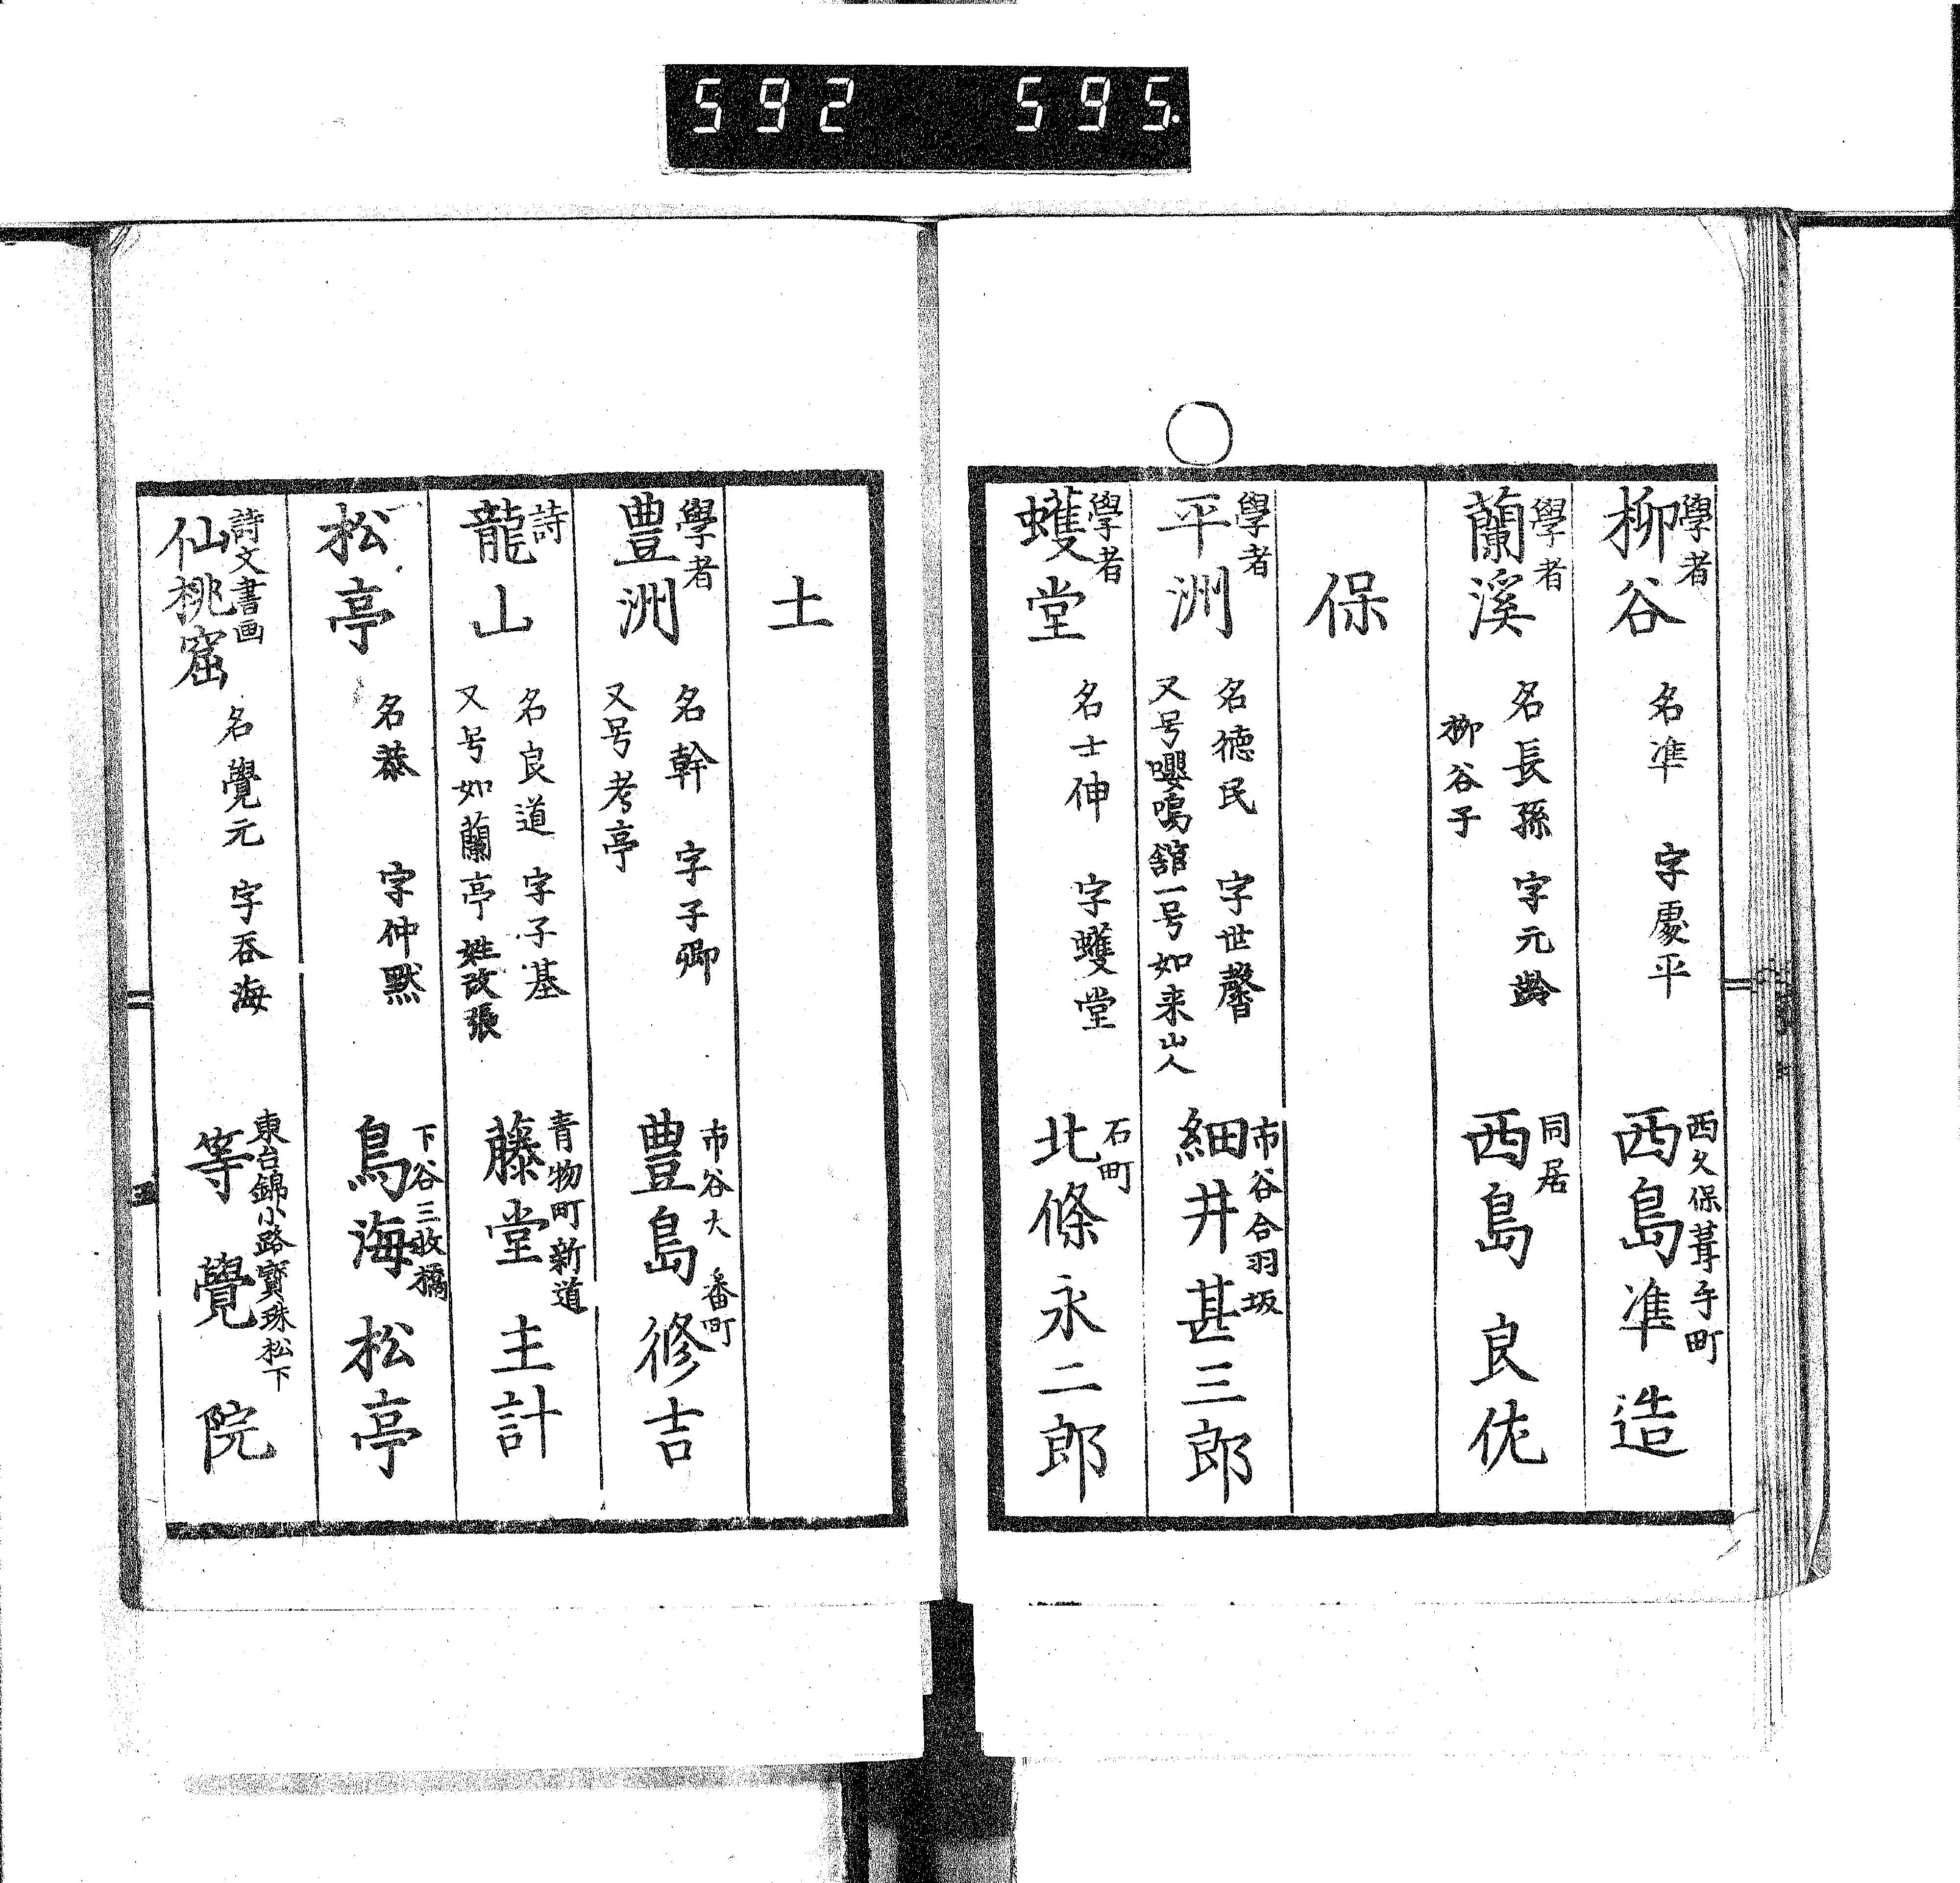 592 595.
學者
柳谷 名準 字處平 西久保葺手町 西島準造
學者
蘭溪 名長孫 字元齡 柳谷子 同居 西島良佐
保
學者
平洲 名德民 字世馨 又号嚶鳴舘一号如来山人 市谷合羽坂 細井甚三郎
學者
蠖堂 名士伸 字蠖堂 石町 北條永二郎
土
學者
豊洲 名幹 字子卿 又号考亭 市谷大番町 豊島修吉
詩
龍山 名良道 字子基 又号如蘭亭 姓改張 青物町新道 藤堂主計
松亭 名恭 字仲黙 下谷三枚橋 鳥海松亭
詩文書画
仙桃窟 名覺元 字呑海 東台錦小路寶珠松下 等覺院